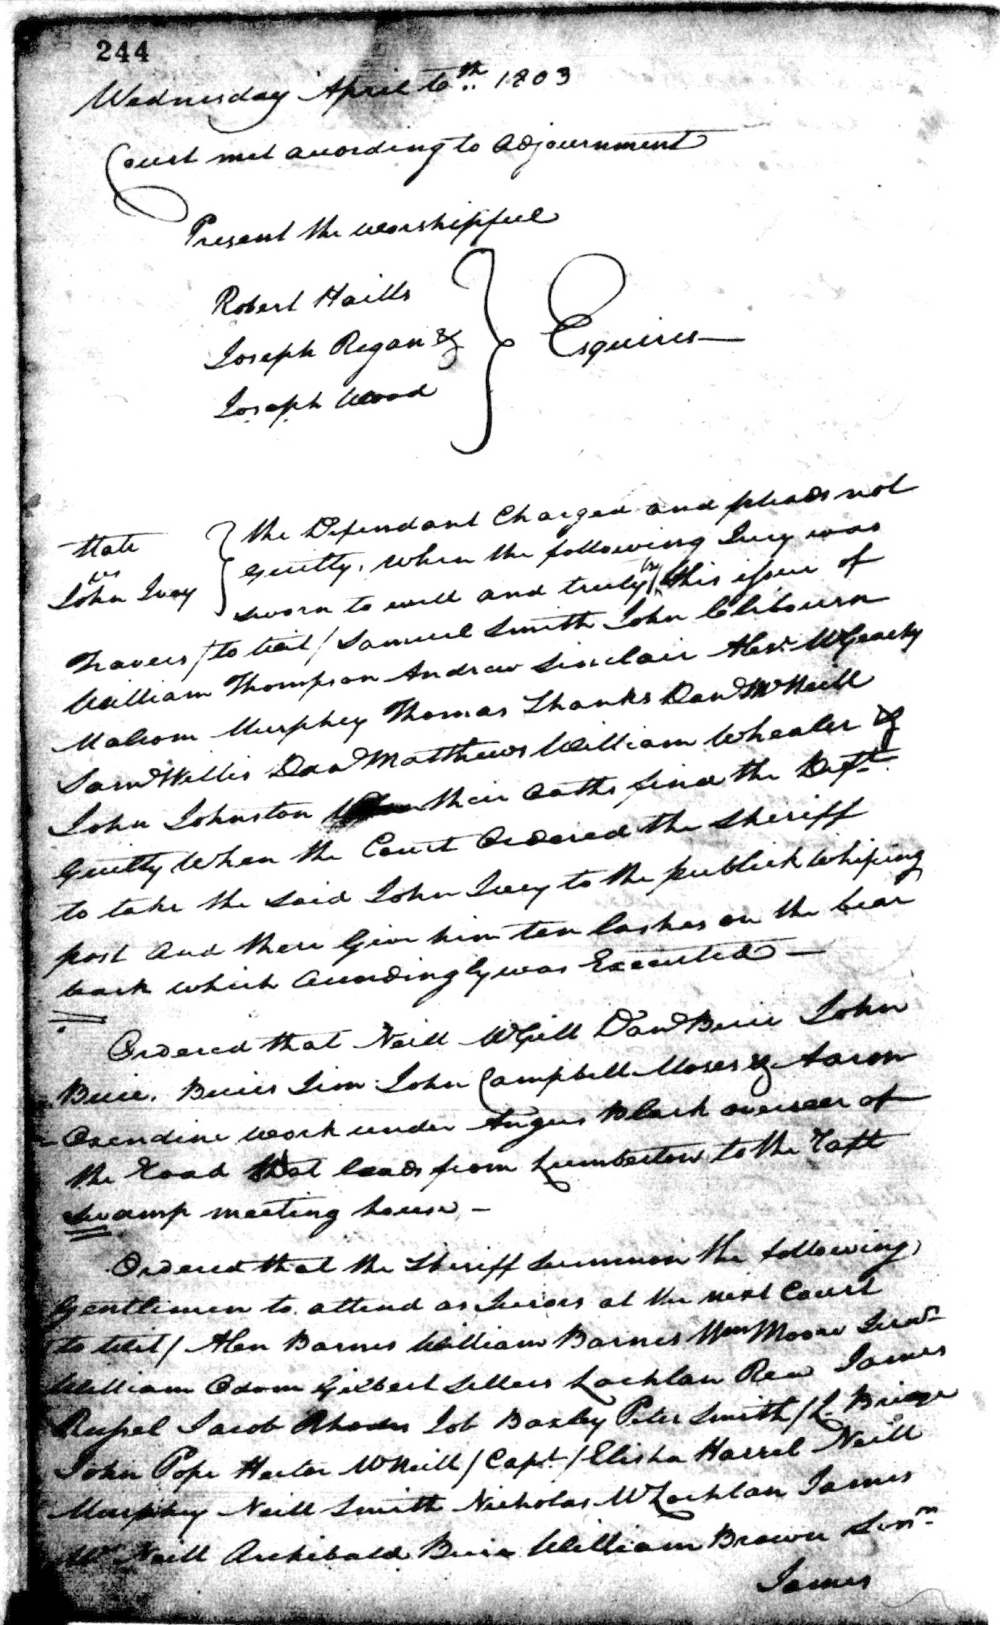 244
Wednesday April 6th 1803
Court met according to adjournment
Present the worshipful
Robert Hails
Joseph Regan &
Joseph Wood
Esquires
State
vs
John Ivey
the Defendant Charged and pleads not
guilty, when the following Jury was
sworn to well and truly try this issue of
Travers /to wit/ Samuel Smith John Clibourn
William Thompson Andrew Sinclair Alexr McGeachy
Malcom Murphey Thomas Shanks Dand McNeill
Saml Willis Dand Matthews William Whealer &
John Johnston their oaths find the Deft
Guilty When the Court Ordered the Sheriff
to take the said John Ivey to the publick Whiping
post and there Give him ten lashes on the bear
back which accordingly was Executed
Ordered that Neill McGill Dand Buie John
Buie. Buies Jim John Campbell Moses & Aaron
Oxendine work under Angus Black overseer of
the Road that leads from Lumberton to the Raft
swamp meeting house
Ordered that the Sheriff summon the following
Gentlemen to attend as Jurors at the next Court
to wit/ Alen Barnes William Barnes Wm Moore
William Odom Gilbert Sellers Lachlan Rea James
Russel Jacob Rhodes Job Baxley Peter Smith
John Pope Hector McNeill /Capt/ Elisha Harrel Neill
Murphey Neill Smith Nicholas McLachlan James
Mc Neill Archibald Buie William Brown Senr
James